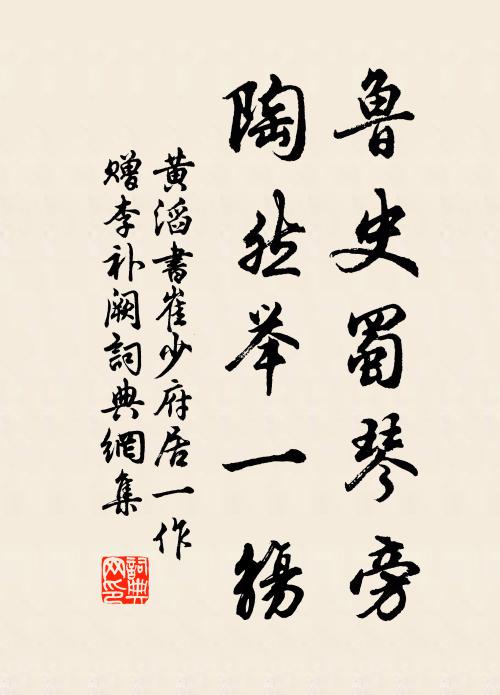 鲁史蜀琴旁
陶然举一觞
黄滔書崔少府居一作
赠李补阙詞典網集
詞典网印